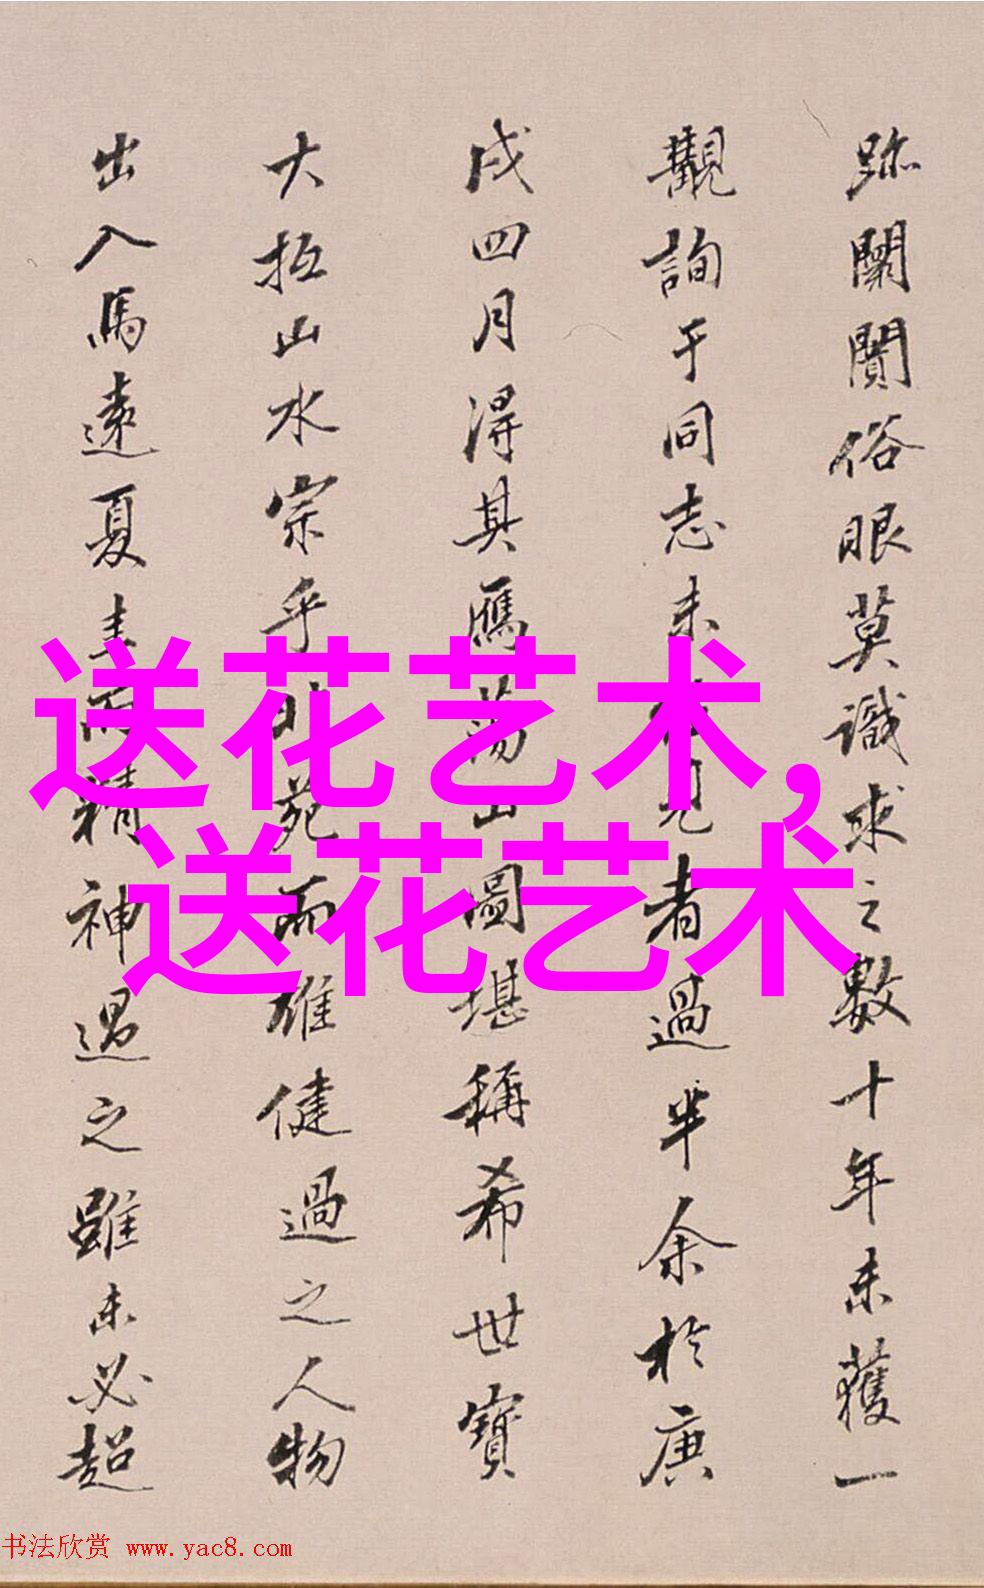 跡闤闠俗眼莫識求之數十年未獲一
觀詢于同志未見者過半余於庚
戌四月得其鴈蕩山圖堪稱希世寶
大抵山水宗乎苑而雄健過之人物
出入馬遠夏圭而精神過之雖未必超
送花艺术，
送花艺术
书法欣赏 www.yac8.com